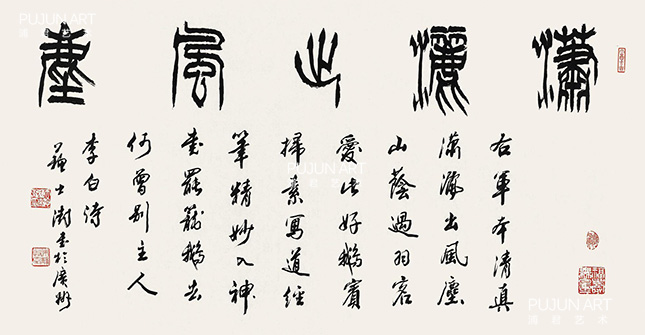 瀟灑出風塵
右軍本清真
瀟灑出風塵
山蔭過羽客
愛此好鵝賓
掃素寫道經
筆精妙入神
書罷籠鵝去
何曾別主人
李白詩
蘇士澍書於廣州
PUJUN ART
PUJUN ART
PUJUN ART